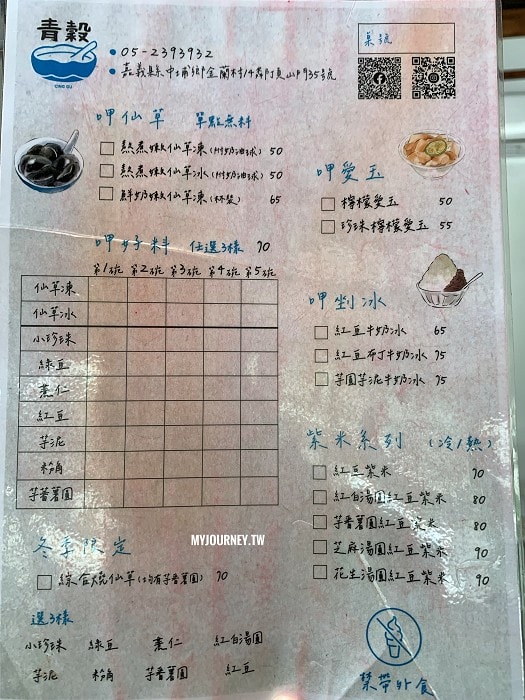 青穀
CING GU
05-2393932
嘉義縣中埔鄉金蘭村14鄰阿貢山935號
桌號
呷仙草 單點無料
熬煮嫩仙草凍(附奶油球) 50
熬煮嫩仙草冰(附奶油球) 50
鮮奶嫩仙草凍(杯裝) 65
呷愛玉
檸檬愛玉 50
珍珠檸檬愛玉 55
呷好料 任選3樣 70
第1碗 第2碗 第3碗 第4碗 第5碗
仙草凍
仙草冰
小珍珠
綠豆
薏仁
紅豆
芋泥
粉角
芋番薯圓
呷剉冰
紅豆牛奶冰 65
紅豆布丁牛奶冰 75
芋圓芋泥牛奶冰 75
紫米系列 (冷/熱)
紅豆紫米 70
紅白湯圓紅豆紫米 80
芋番薯圓紅豆紫米 80
芝麻湯圓紅豆紫米 90
花生湯圓紅豆紫米 90
MYJOURNEY.TW
冬季限定
綜合燒仙草(均有芋番薯圓) 70
選3樣
小珍珠 綠豆 薏仁 紅白湯圓
芋泥 粉角 芋番薯圓 紅豆
禁帶外食